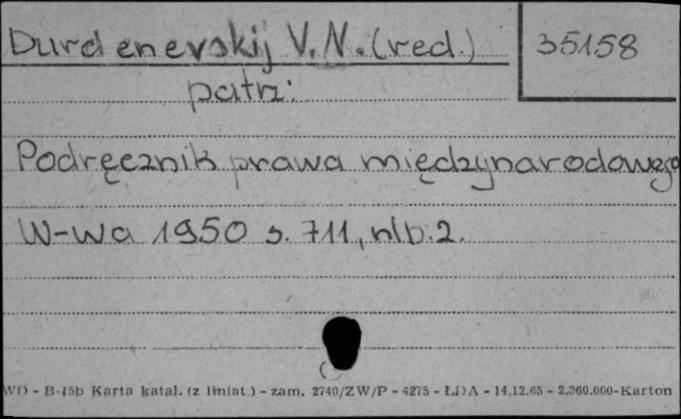 Durdenevskij V.N. (red.) 35158
patrz:
Podręcznik prawa międzynarodowego
W-wa 1950 s. 711, nlb. 2.
WD - B-15b Karta katal. (z liniat.) - zam. 2740/ZW/P - 4275 - ŁDA - 14.12.65 - 2.360.000 - Karton